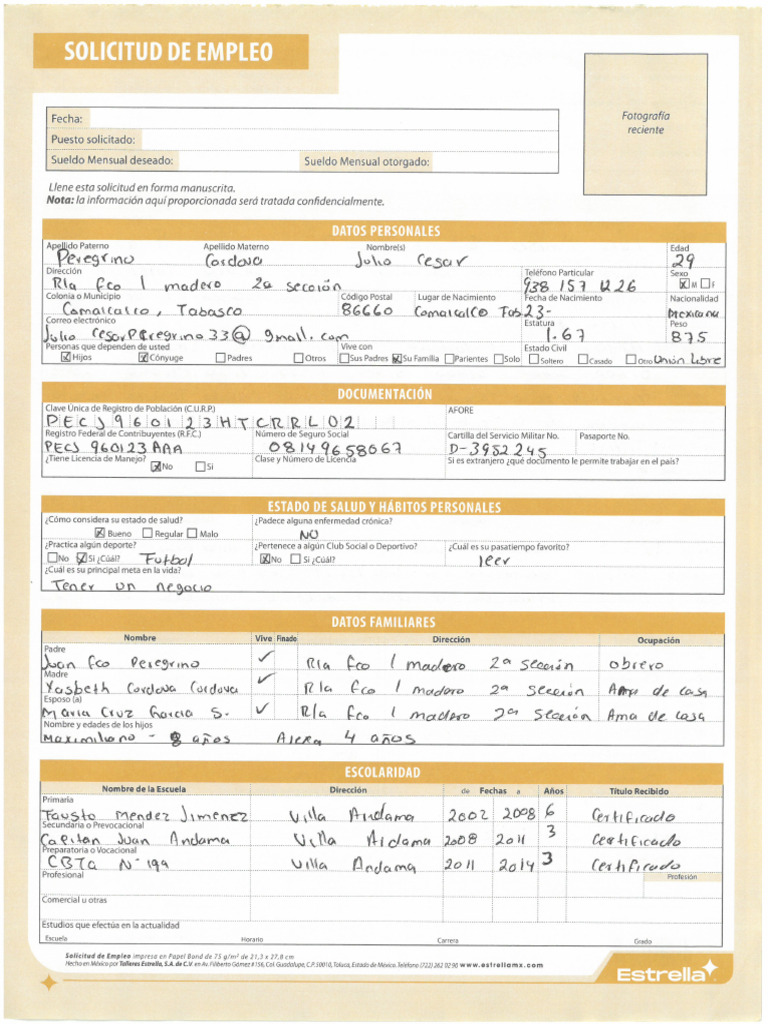 SOLICITUD DE EMPLEO
Fotografía
reciente
Fecha:
Puesto solicitado:
Sueldo Mensual deseado: Sueldo Mensual otorgado:
Llene esta solicitud en forma manuscrita.
Nota: la información aquí proporcionada será tratada confidencialmente.
DATOS PERSONALES
Apellido Paterno Apellido Materno Nombre(s) Edad
Peregrino Cordova Julio Cesar 29
Dirección Teléfono Particular Sexo
R/a fco I madero 2a sección 938 157 1226 X M F
Colonia o Municipio Código Postal Lugar de Nacimiento Fecha de Nacimiento Nacionalidad
Comalcalco, Tabasco 86660 Comalcalco Tab 23- Mexicana
Correo electrónico Estatura Peso
Julio CesarPeregrino33@gmail.com 1.67 875
Personas que dependen de usted Vive con Estado Civil
X Hijos X Cónyuge Padres Otros Sus Padres X Su Familia Parientes Solo Soltero Casado Otro Unión libre
DOCUMENTACIÓN
Clave Única de Registro de Población (C.U.R.P.) AFORE
PECJ960123HTCRRL02
Registro Federal de Contribuyentes (R.F.C.) Número de Seguro Social Cartilla del Servicio Militar No. Pasaporte No.
PECJ 960123 AAA 08149658067 D-3952245
¿Tiene Licencia de Manejo? Clase y Número de Licencia Si es extranjero ¿qué documento le permite trabajar en el país?
X No Si
ESTADO DE SALUD Y HÁBITOS PERSONALES
¿Cómo considera su estado de salud? ¿Padece alguna enfermedad crónica?
X Bueno Regular Malo NO
¿Practica algún deporte? ¿Pertenece a algún Club Social o Deportivo? ¿Cuál es su pasatiempo favorito?
No X Si ¿Cúál? Futbol X No Si ¿Cúál? leer
¿Cuál es su principal meta en la vida?
Tener un negocio
DATOS FAMILIARES
Nombre Vive Finado Dirección Ocupación
Padre
Juan fco Peregrino ✓ R/a fco I madero 2a sección obrero
Madre
Yasbeth Cordova Cordova ✓ R/a fco I madero 2a sección Ama de casa
Esposo (a)
Maria Cruz Garcia S. ✓ R/a fco I madero 2a sección Ama de casa
Nombre y edades de los hijos
Maximiliano - 8 años 4 años
ESCOLARIDAD
Nombre de la Escuela Dirección de Fechas a Años Título Recibido
Primaria
Fausto Mendez Jimenez Villa Andama 2002 2008 6 Certificado
Secundaria o Prevocacional
Capitan Juan Andama Villa Aldama 2008 2011 3 Certificado
Preparatoria o Vocacional
CBTA N° 199 Villa Andama 2011 2014 3 Certificado
Profesional Profesión
Comercial u otras
Estudios que efectúa en la actualidad
Escuela Horario Carrera Grado
Solicitud de Empleo impresa en Papel Bond de 75 g/m² de 21,3 x 27,8 cm
Hecho en México por Talleres Estrella, S.A. de C.V. en Av. Filiberto Gómez #156, Col. Guadalupe, C.P. 50010, Toluca, Estado de México. Teléfono (722) 262 02 96 www.estrellamx.com
Estrella